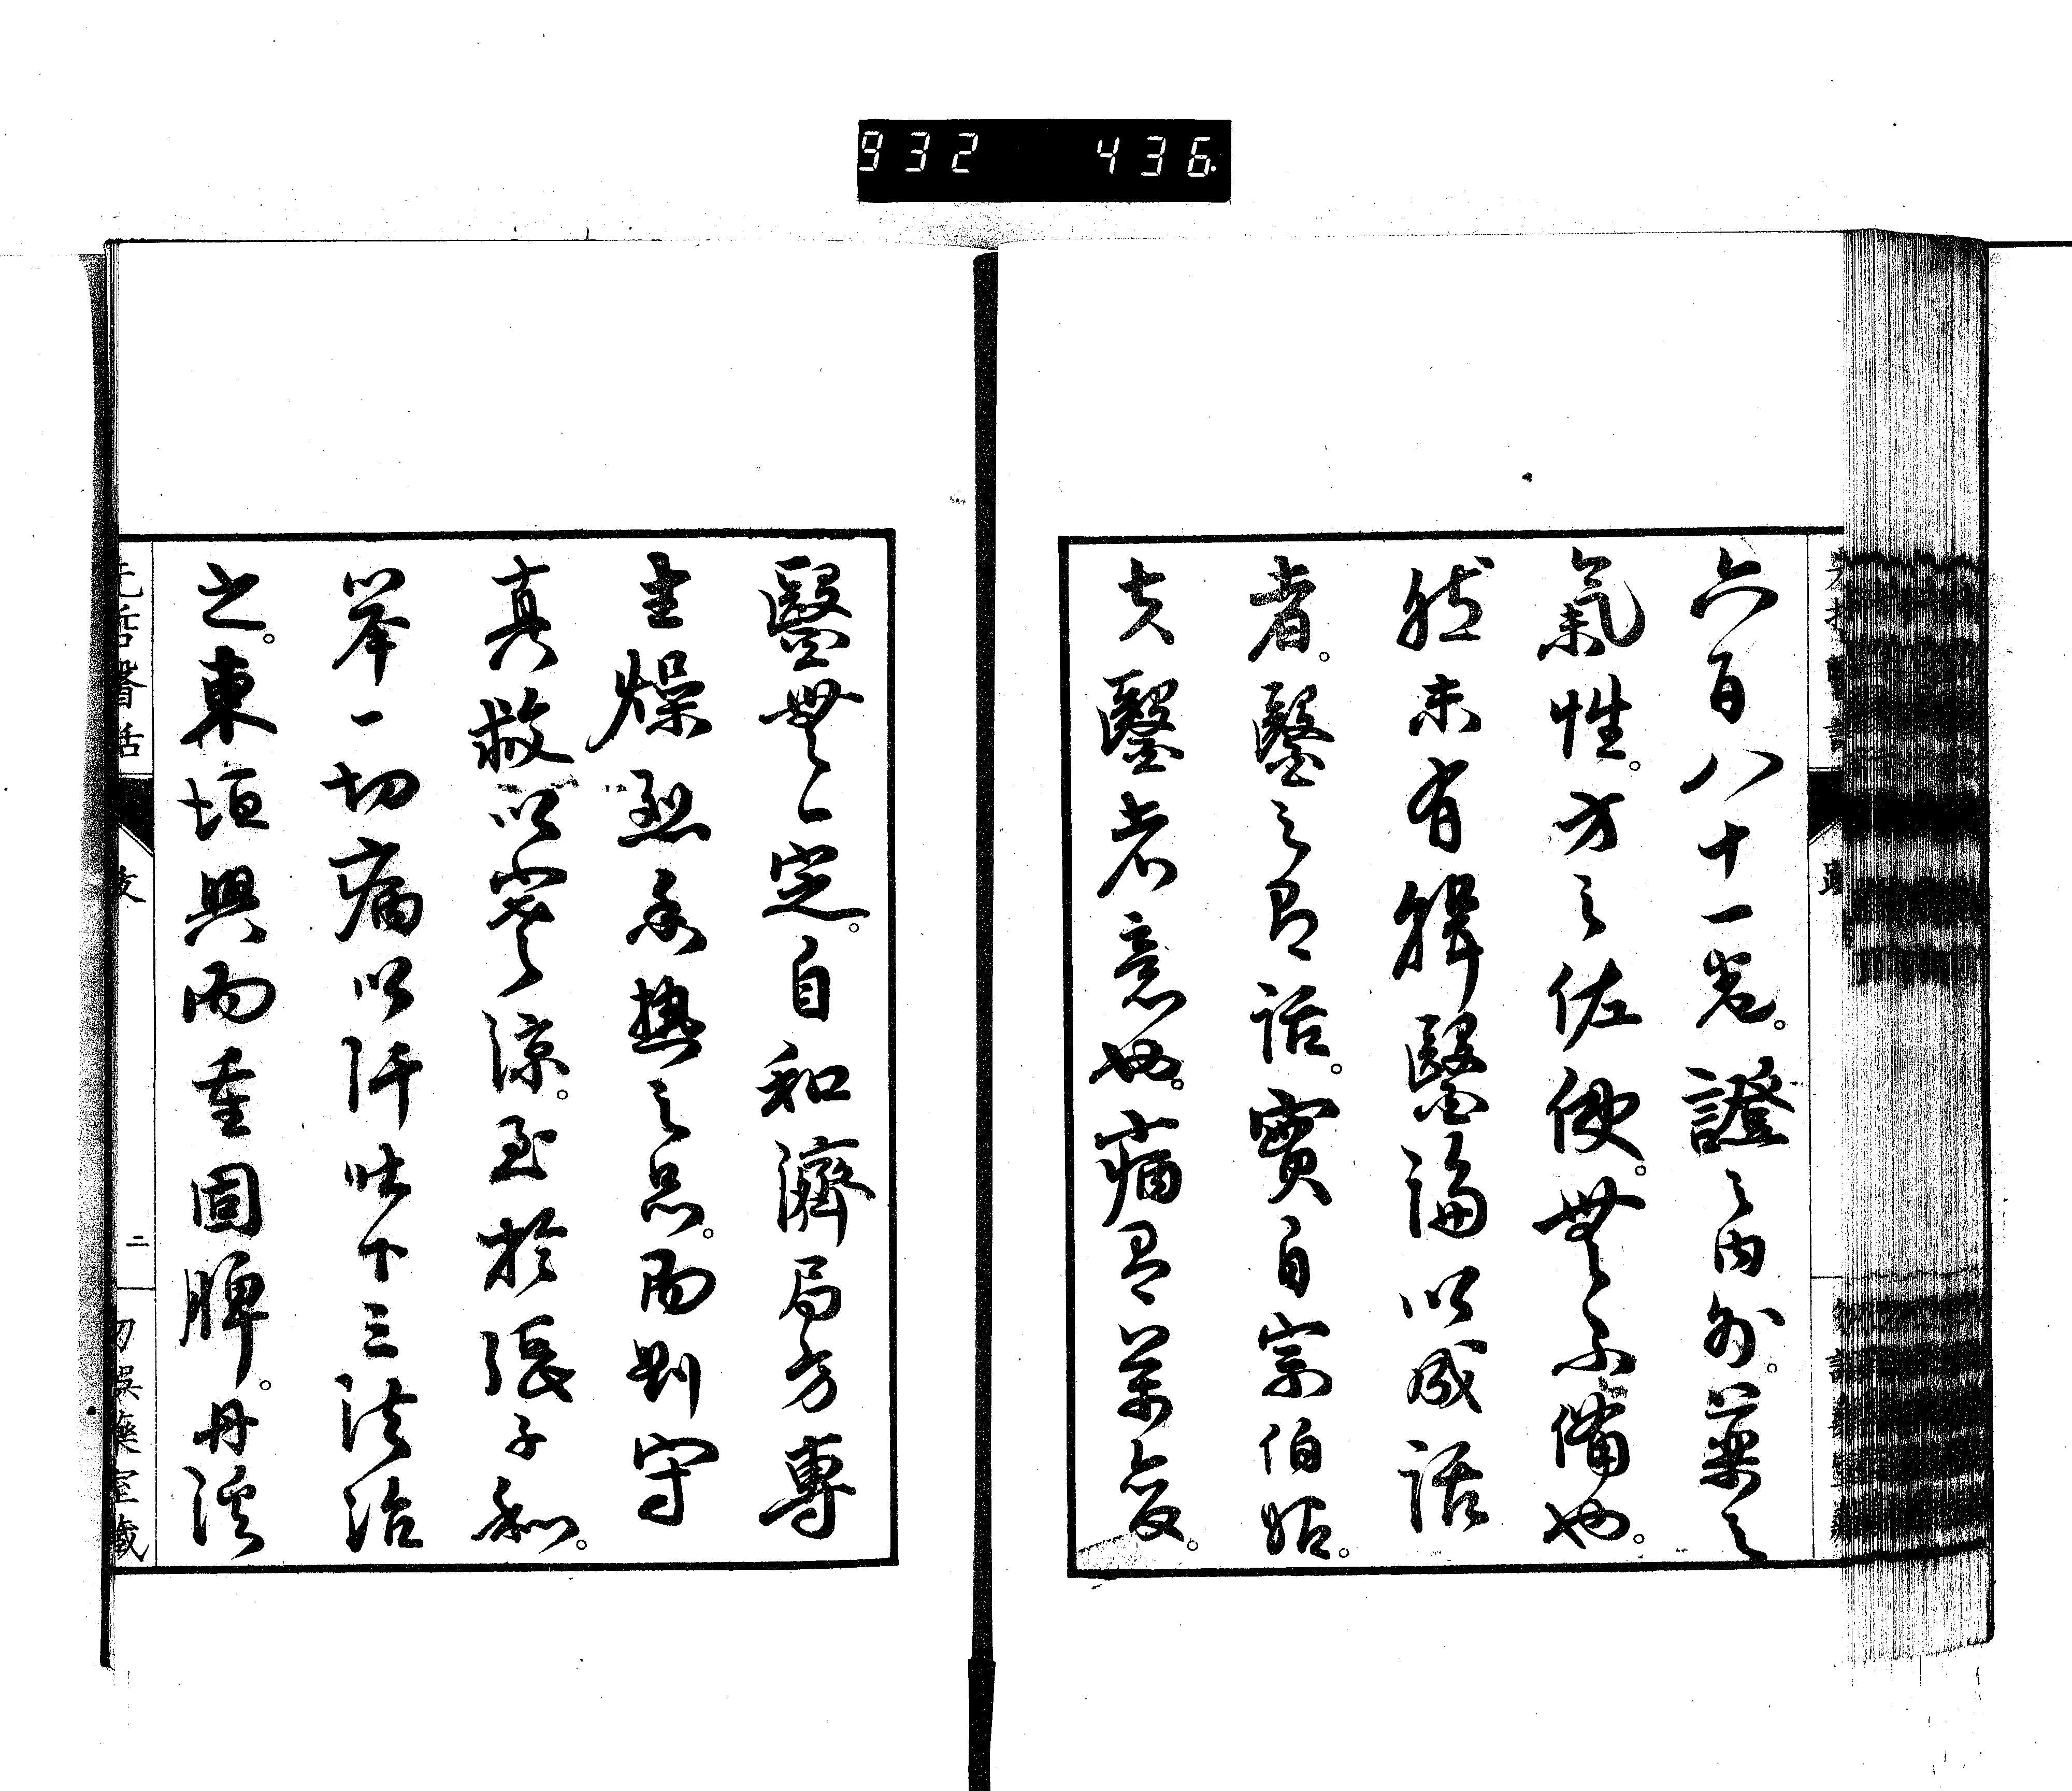 932 436
六百八十一卷。證之内外。藥之
氣性。方之佐使。無不備也。
然未有輯醫論以成話
者。醫之有話。實自宗伯始。
夫醫者意也。病有萬變。
醫無一定。自和濟局方專
主燥烈香熱之品。而劉守
真救以寒涼。至於張子和。
举一切病以汗吐下三法治
之。東垣興而重固脾。丹溪
先哲醫話
跋
二
勿誤藥室藏